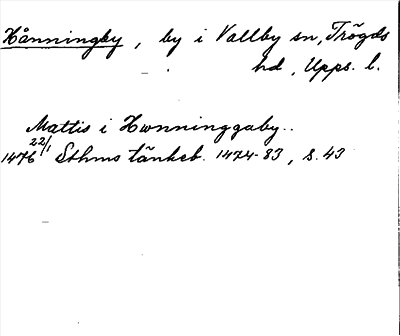 Hånningby, by i Vallby sn, Trögds
hd, Upps. l.
Mattis i Hwnninggaby..
1476 22/1 Sthms tänkeb. 1474-83, s. 43